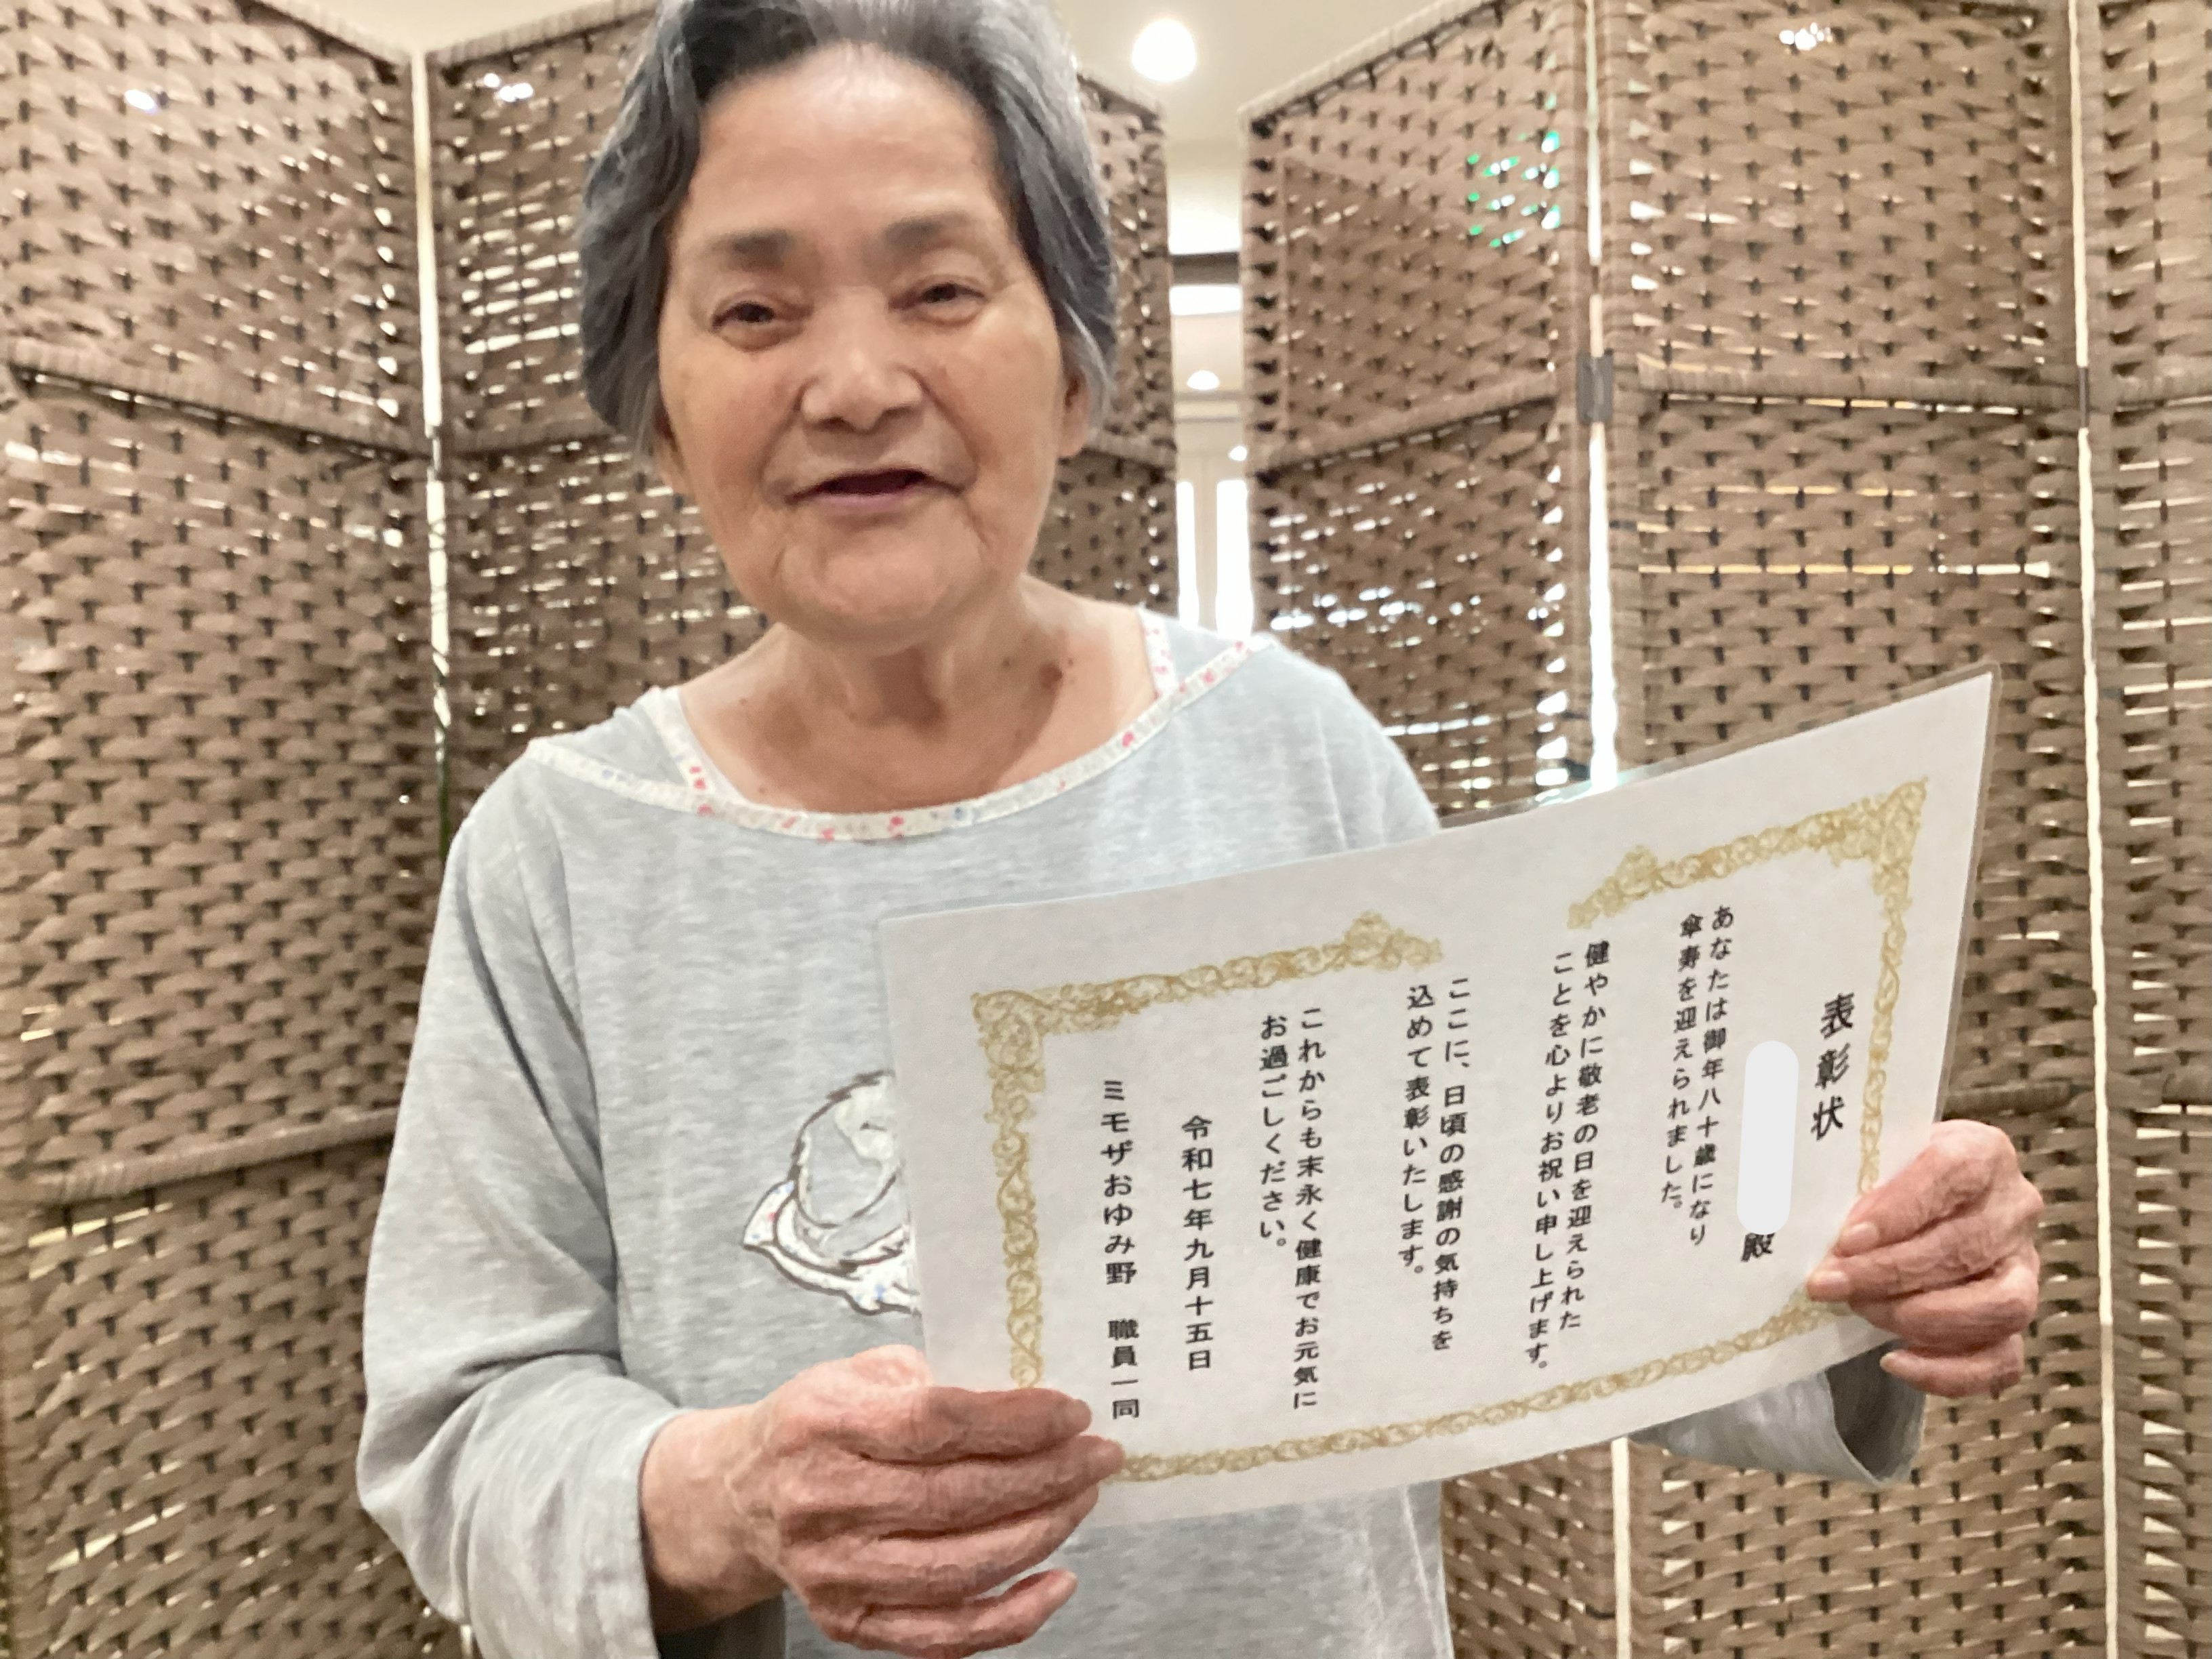 表彰状
殿
あなたは御年八十歳になり
傘寿を迎えられました。
健やかに敬老の日を迎えられた
ことを心よりお祝い申し上げます。
ここに、日頃の感謝の気持ちを
込めて表彰いたします。
これからも末永く健康でお元気に
お過ごしください。
令和七年九月十五日
ミモザおゆみ野　職員一同